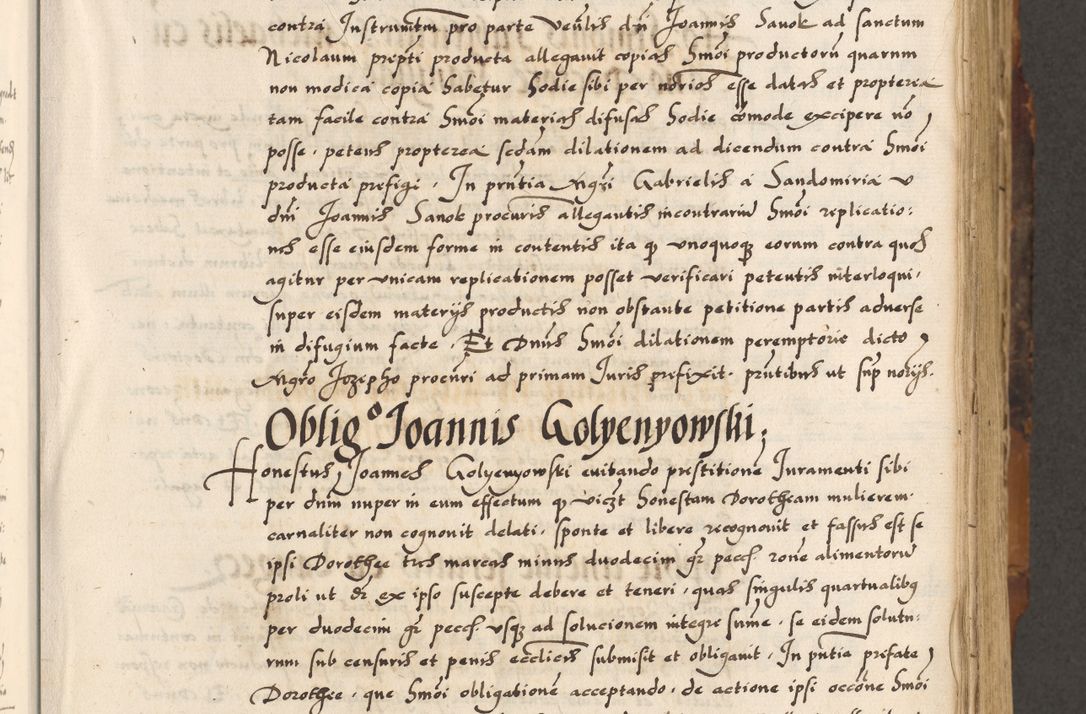 contra Instrumtm pro parte Venlis dni Joannis Sanok ad sanctum
Nicolaum prepti producta allegavit copias hmoi productoru quarum
non modica copia habetur hodie sibi per notios esse datas et propterea
tam facile contra hmoi materias difusas hodie comode excipere no
posse . petens propterea scdam dilationem ad dicendum contra hmoi
producta prefigi . In pntia Mgri Gabrielis a Sandomiria v
dni Joannis Sanok procuris allegantis incontrariu hmoi replicatio:
nes esse eiusdem forme in contentis ita q unoquoq eorum contra quos
agitur per unicam replicationem posset verificari petentis interloqui .
super eisdem materiis productis non obstante petitione partis adverse
in difugium facte . Et Dnus hmoi dilationem peremptorie dicto
Mgro Jozepho procuri ad primam Iuris prefixit . pntibus ut sup notijs .
Oblig° Joannis Golyenyowski ;
Honestus Joannes Golyenyowski evitando prestitione Iuramenti sibi
per dnm nuper in eum effectum q viczt honestam Dorotheam mulierem .
carnaliter non cognovit delati . sponte et libere recognovit et fassus est se
ipsi Dorothee tres marcas minus duodecim gr pecc rone alimentoru
proli ut dr ex ipso suscepte debere et teneri . quas singulis quartualibus
per duodecim gr pecc usq ad solucionem integre sume . se eidem solutu:
rum sub censuris et penis eccliciis submisit et obligavit . In pntia prefate
Dorothee . que hmoi obligatione acceptando . de actione ipsi occone hmoi